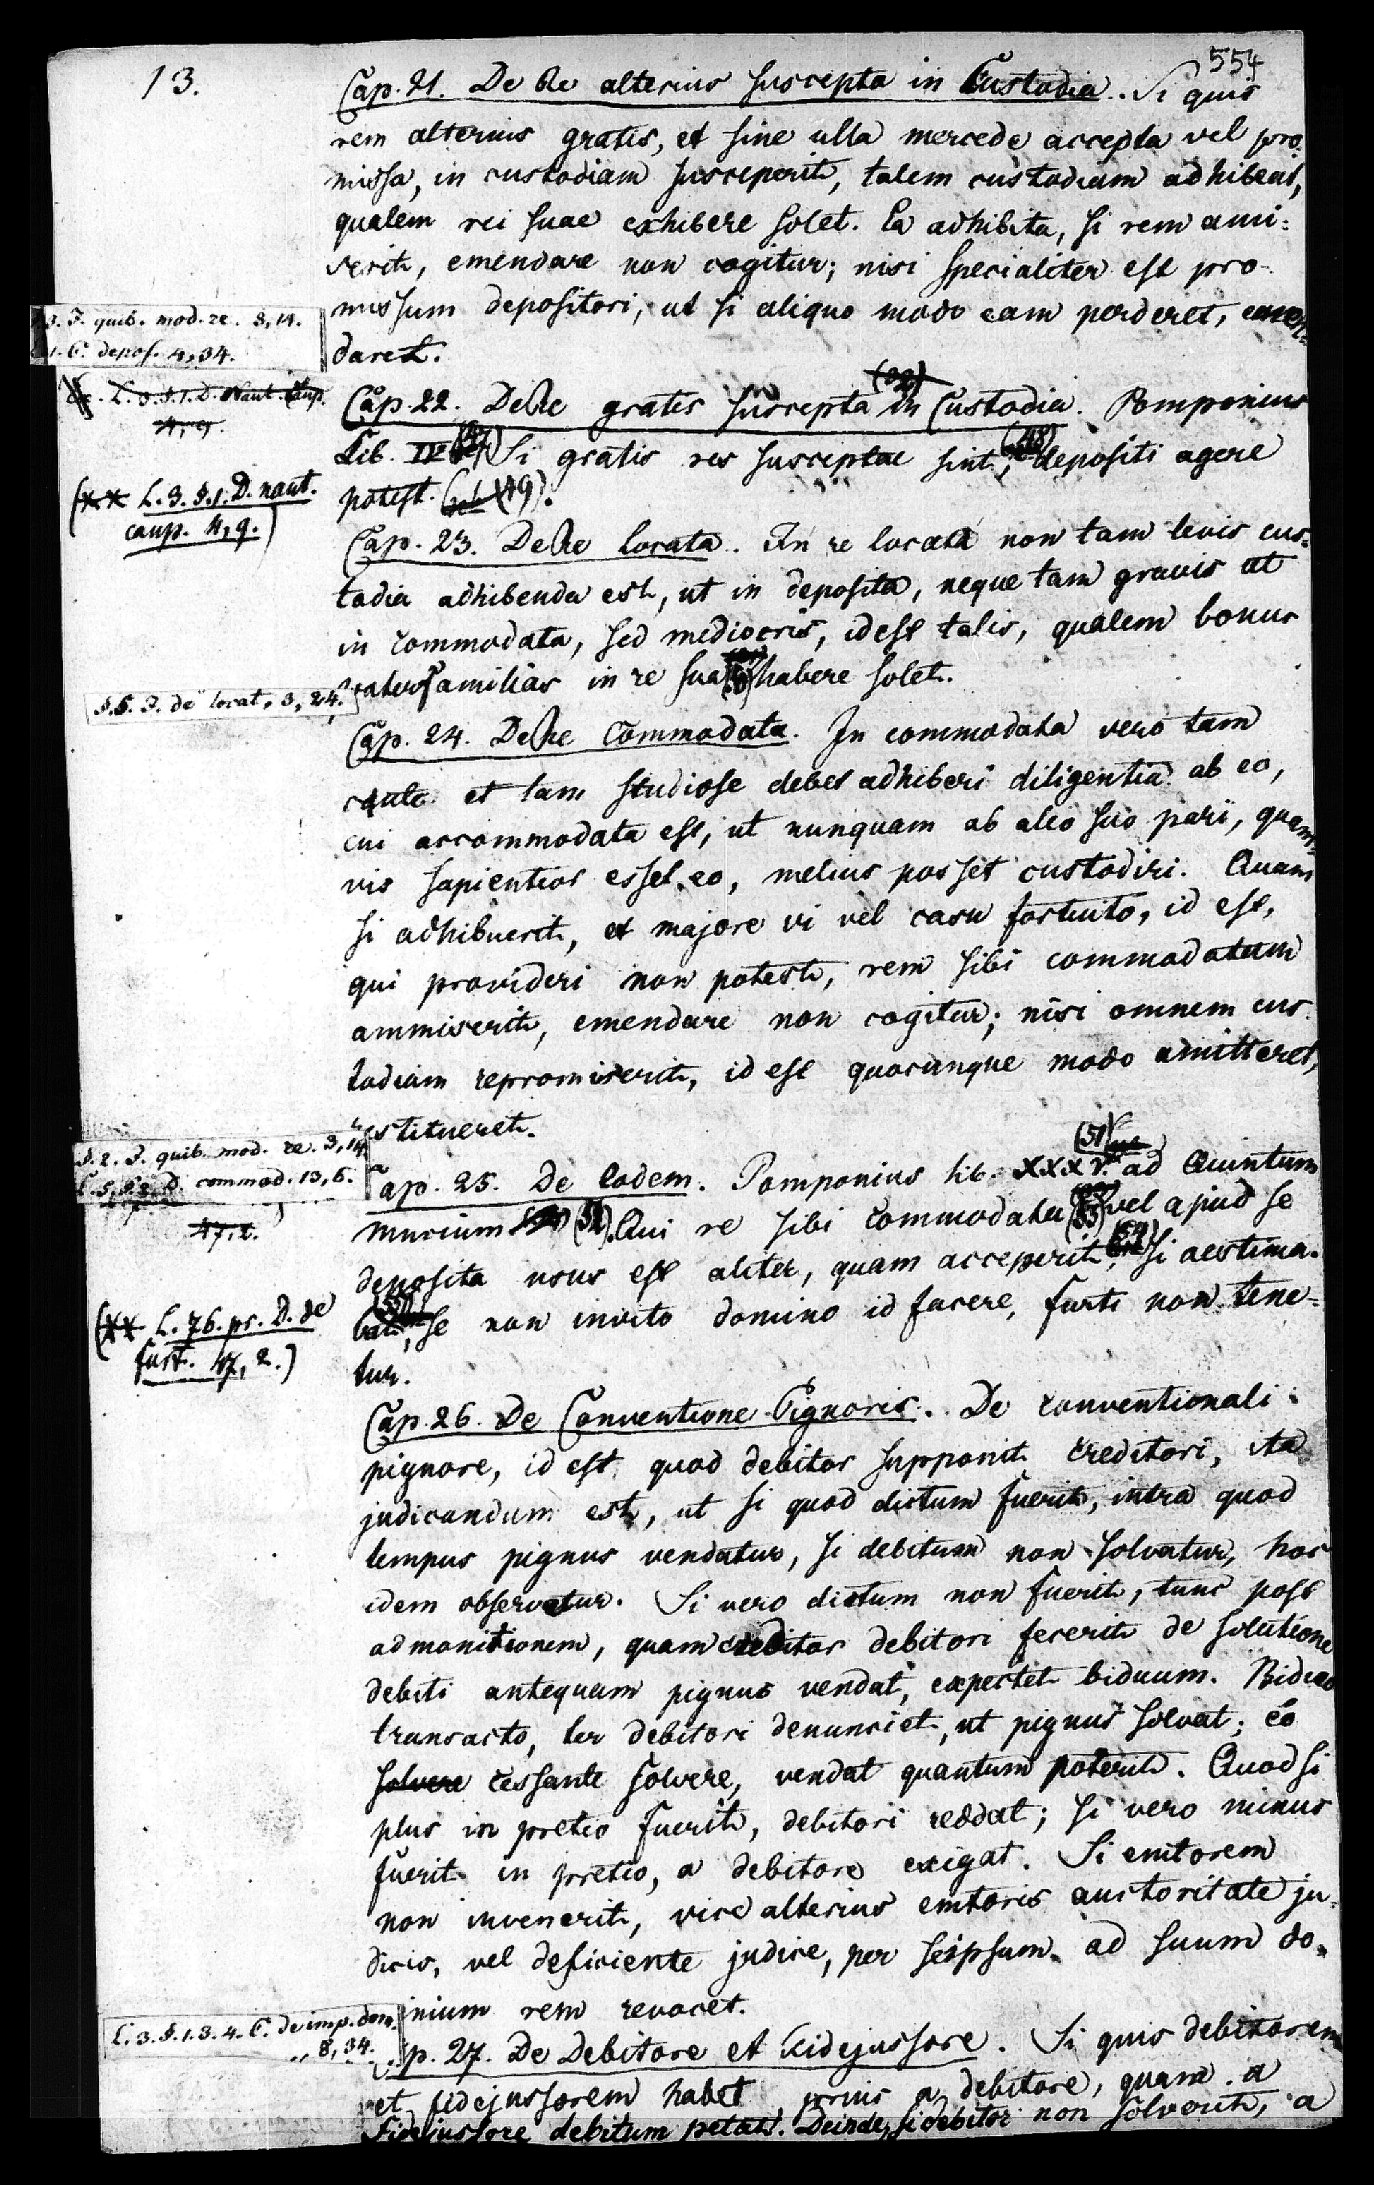 13.
554
Cap. 21. De Re alterius suscepta in Custodia. Si quis
rem alterius gratis, et sine ulla mercede accepta vel pro-
missa, in custodiam susceperit, talem custodiam adhibeat,
qualem rei suae exhibere solet. Ea adhibita, si rem ami-
serit, emendare non cogitur; nisi specialiter est pro-
missum depositori, ut si aliquo modo eam perderet, emen-
daret.
3. I. quib. mod. re. 3,14.
1. C. depos. 4,34.
L. 3. §. 1. D. Naut. Caup.
4,9.
Cap. 22. De Re gratis suscepta in Custodia. Pomponius
Lib. IV (47) Si gratis res susceptae sint, (48) depositi agere
potest. (49).
(xx L. 3. §. 1. D. naut.
caup. 4,9.)
Cap. 23. De Re locata. In re locata non tam levis cus-
todia adhibenda est, ut in deposita, neque tam gravis ut
in commodata, sed mediocris, id est talis, qualem bonus
paterfamilias in re sua habere solet.
§. 5. I. de locat. 3,24.
Cap. 24. De Re Commodata. In commodata vero tam
caute et tam studiose debet adhiberi diligentia ab eo,
cui accommodata est, ut nunquam ab alio suo pari, quam-
vis sapientior esset eo, melius posset custodiri. Quam
si adhibuerit, et majore vi vel casu fortuito, id est,
qui provideri non potest, rem sibi commodatam
ammiserit, emendare non cogitur; nisi omnem cus-
todiam repromiserit, id est quocunque modo amitteret,
restitueret.
§. 2. I. quib. mod. re. 3,14.
L. 5, §. 2. D. commod. 13,6.
47,2.
Cap. 25. De Eodem. Pomponius lib. XXXV. (51) ad Quintum
Mucium (52). Qui re sibi commodata (53) vel apud se
deposita usus est aliter, quam acceperit, (54) si aestima-
bat, se non invito domino id facere, furti non tene-
tur.
(xx L. 76. pr. D. de
furt. 47,2.)
Cap. 26. De Conventione Pignoris. De conventionali
pignore, id est quod debitor supponit creditori, ita
judicandum est, ut si quod dictum fuerit, intra quod
tempus pignus vendatur, si debitum non solvatur, hoc
idem observetur. Si vero dictum non fuerit, tunc post
admonitionem, quam creditor debitori fecerit de solutione
debiti antequam pignus vendat, expectet biduum. Biduo
transacto, ter debitori denunciet, ut pignus solvat; eo
solvere cessante solvere, vendat quantum poterit. Quod si
plus in pretio fuerit, debitori reddat; si vero minus
fuerit in pretio, a debitore exigat. Si emtorem
non invenerit, vice alterius emtoris auctoritate ju-
dicis, vel deficiente judice, per seipsum ad suum do-
minium rem revocet.
L. 3. §. 1. 3. 4. C. de imp. dom.
8,34.
Cap. 27. De Debitore et Fidejussore. Si quis debitorem
et fidejussorem habet, prius a debitore, quam a
Fidejussore debitum petat. Deinde, si debitor non solverit, a